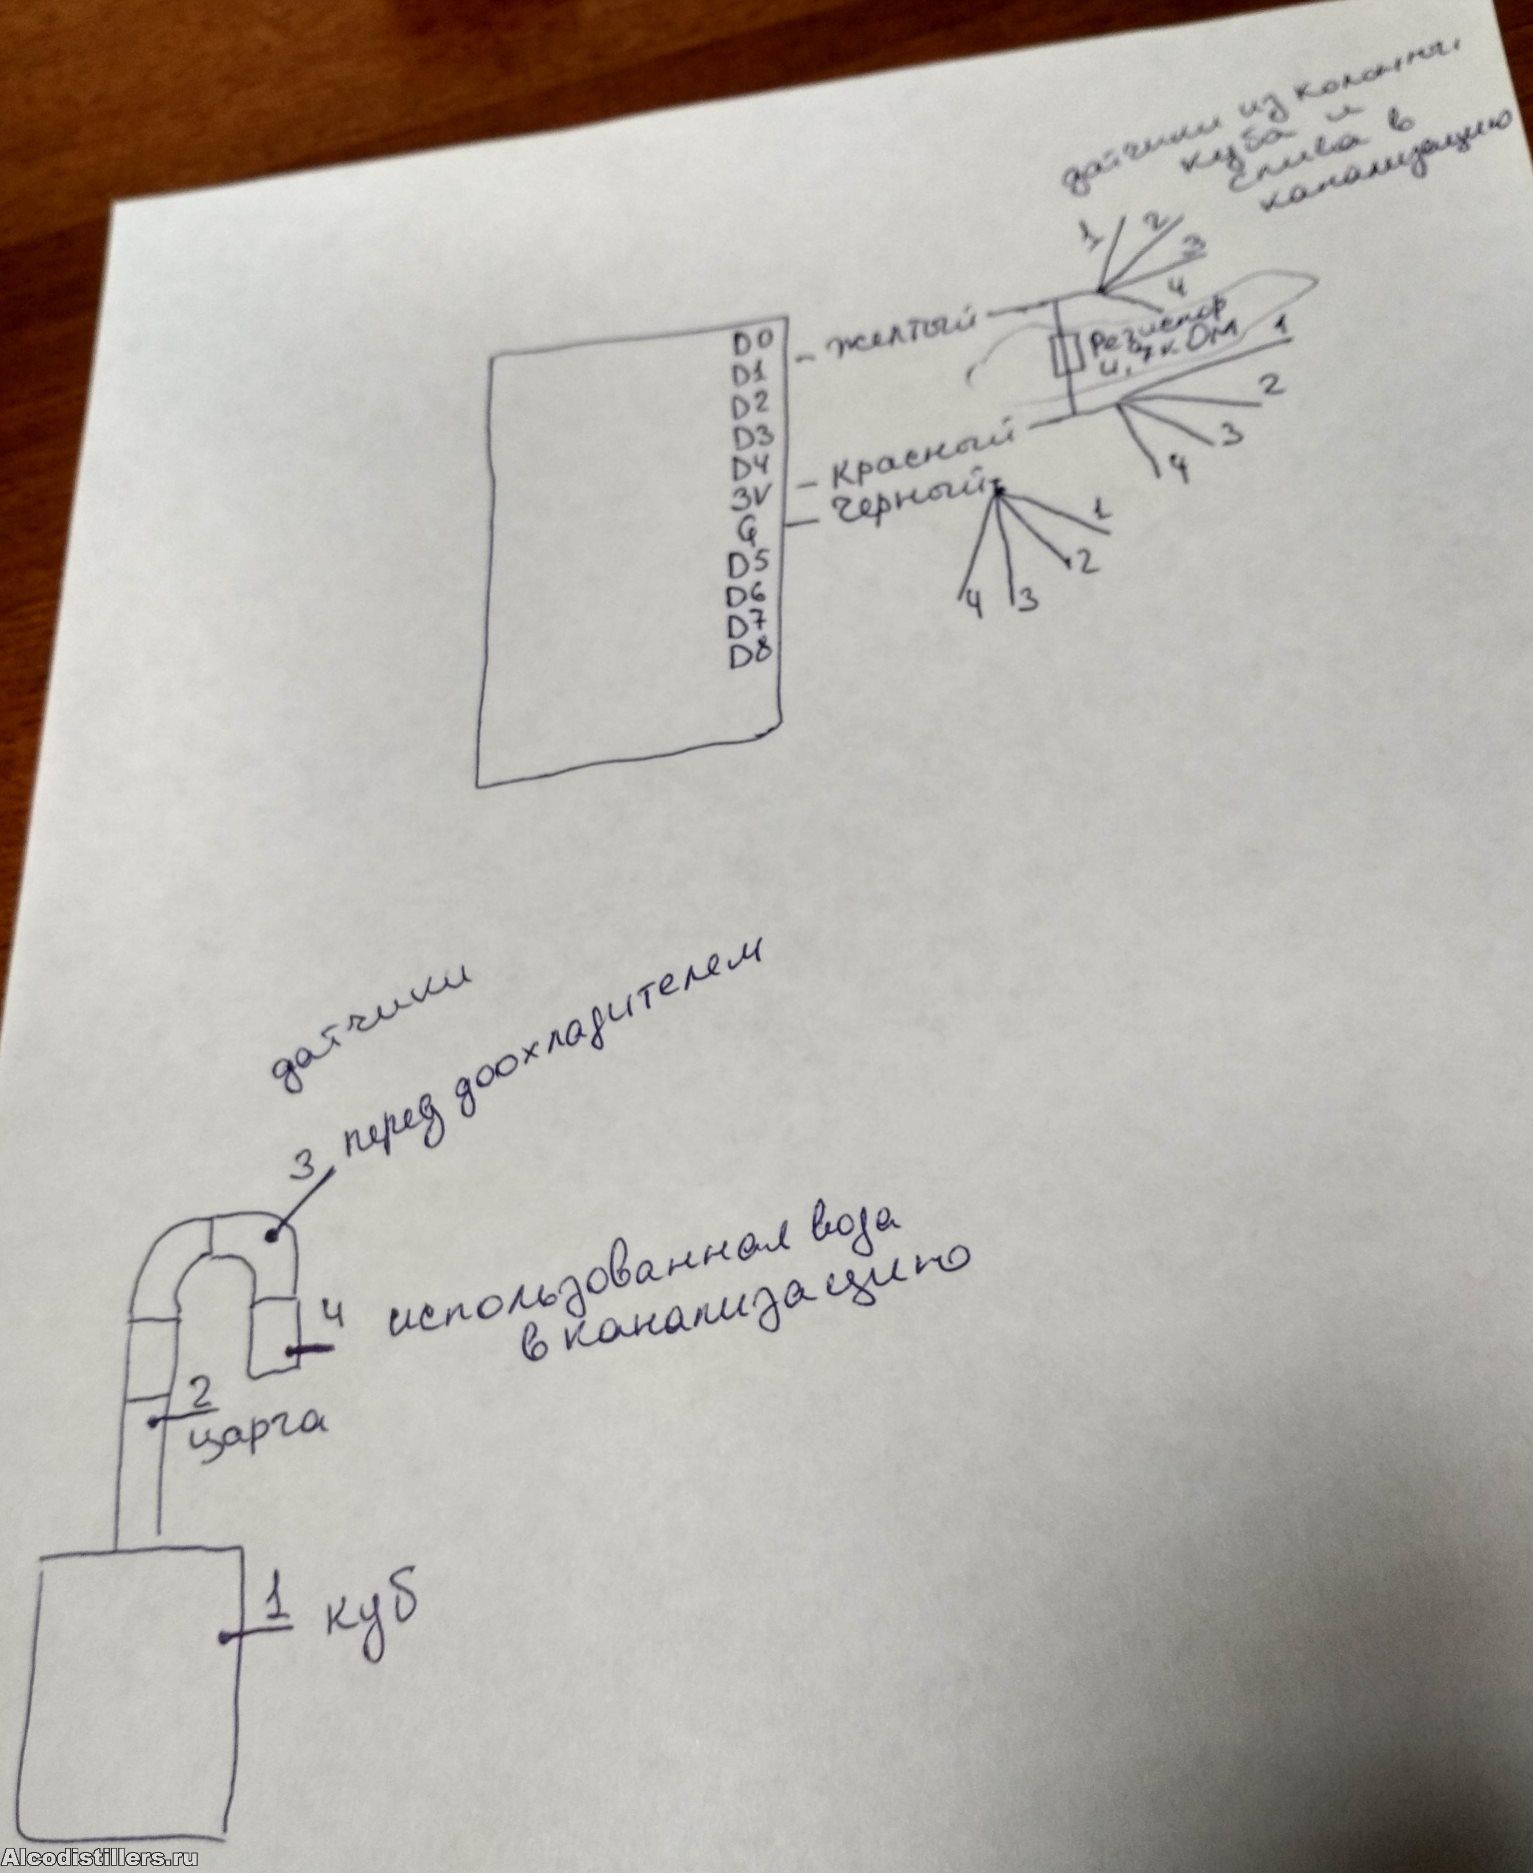 датчики из колонны
куба и
слива в
канализацию
1 2 3 4
D0
D1
D2
D3
D4
3V
G
D5
D6
D7
D8
желтый
Резистор
4,7 к ОМ
1 2 3 4
красный
черный
1 2 3 4
датчики
3 перед доохладителем
4 использованная вода
в канализацию
2
царга
1 куб
Alcodistillers.ru